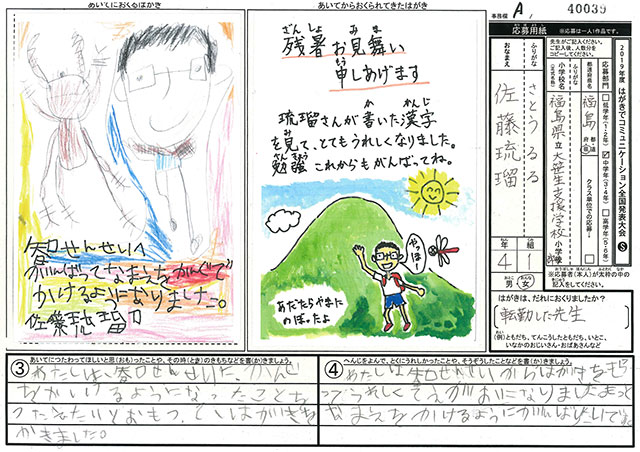 あいてにおくるはがき
がんばってなまえをかんじで
かけるようになりました。
佐藤琉瑠
あいてからおくられてきたはがき
ざんしょ みま
残暑お見舞い
もう
申しあげます
か かんじ
琉瑠さんが書いた漢字
み
を見て、とてもうれしくなりました。
べんきょう
勉強これからもがんばってね。
やっほー
あだたらやまに
のぼったよ
事務欄 A
40039
応募用紙
※応募は一人1作品です。
先生がご記入ください。
ご記入後、人数分を
コピーしてください。
2019年度 はがきでコミュニケーション全国発表大会 S
応募部門
低学年(1・2年)
中学年(3・4年)
高学年(5・6年)
クラス単位での応募
都道府県名
福島
小学校名
(正式名称)
福島県立大笹生支援学校
小学校
ふりがな
さとう るる
おなまえ
佐藤琉瑠
4年
1組
男 女
※応募者(本人)が太枠の中の
記入をしてください。
はがきは、だれにおくりましたか?
転勤した先生
(例)ともだち、てんこうしたともだち、いとこ、
いなかのおじいさん・おばあさんなど
③ あいてにつたわってほしいと思(おも)ったことや、その時(とき)のきもちなどを書(か)きましょう。
ちがかけるようになったことを
つたえたいとおもって、はがきを
かきました。
④ へんじをよんで、とくにうれしかったことや、そうぞうしたことなどを書(か)きましょう。